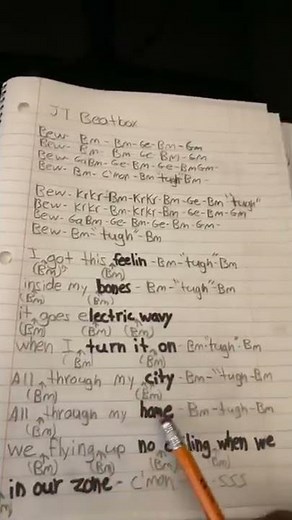 JT Beatbox
Bew- Bm - Bm-Ge-Bm-Gm
Bew- Bm- Bm-Ge Bm-Gm
Bew GaBm-Ge-Bm-Ge-BmGm
Bew- Bm- C'mon -Bm"tugh"Bm-
Bew- KrKr-Bm-KrKr-Bm-Ge-Bm"tugh"
Bew- KrKr-Bm-KrKr-Bm-Ge-Bm-Gm"
Bew- GaBm-Ge-Bm-Ge-Bm-Gm-
Bew- Bm-"tugh"-Bm
I got this feelin -Bm-"tugh"-Bm
(Bm) (Bm)
inside my bones -Bm-"tugh"-Bm
(Bm) (Bm)
it goes electric, wavy
(Bm) (Bm) (Bm)
when I turn it on -Bm-"tugh"-Bm
(Bm) (Bm)
All through my city -Bm-"tugh-Bm
(Bm) (Bm)
All through my home -Bm-tugh-Bm
(Bm)
We flying up no when we
(Bm) (Bm) (Bm)
in our zone - C'mon - sss